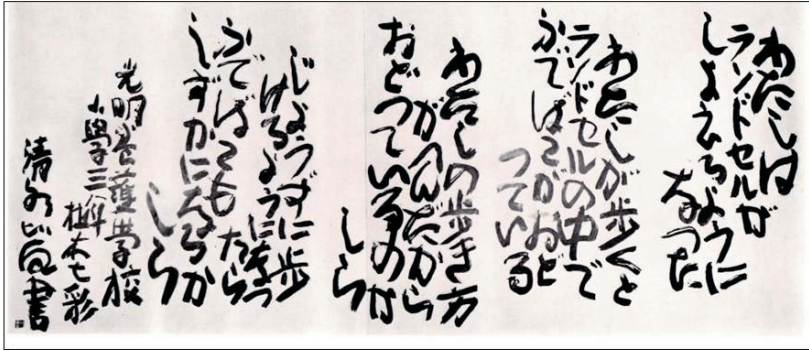 わたしは
ランドセルが
しよえるように
なつた
わたしが歩くと
ランドセルの中で
ふでばこがおど
つている
わたしの歩き方
がへんだから
おどつているのか
しら
じようずに歩
けるようになつ
たら
ふでばこも
しずかになるか
しら
光明養護學校
小學三年
清水 書